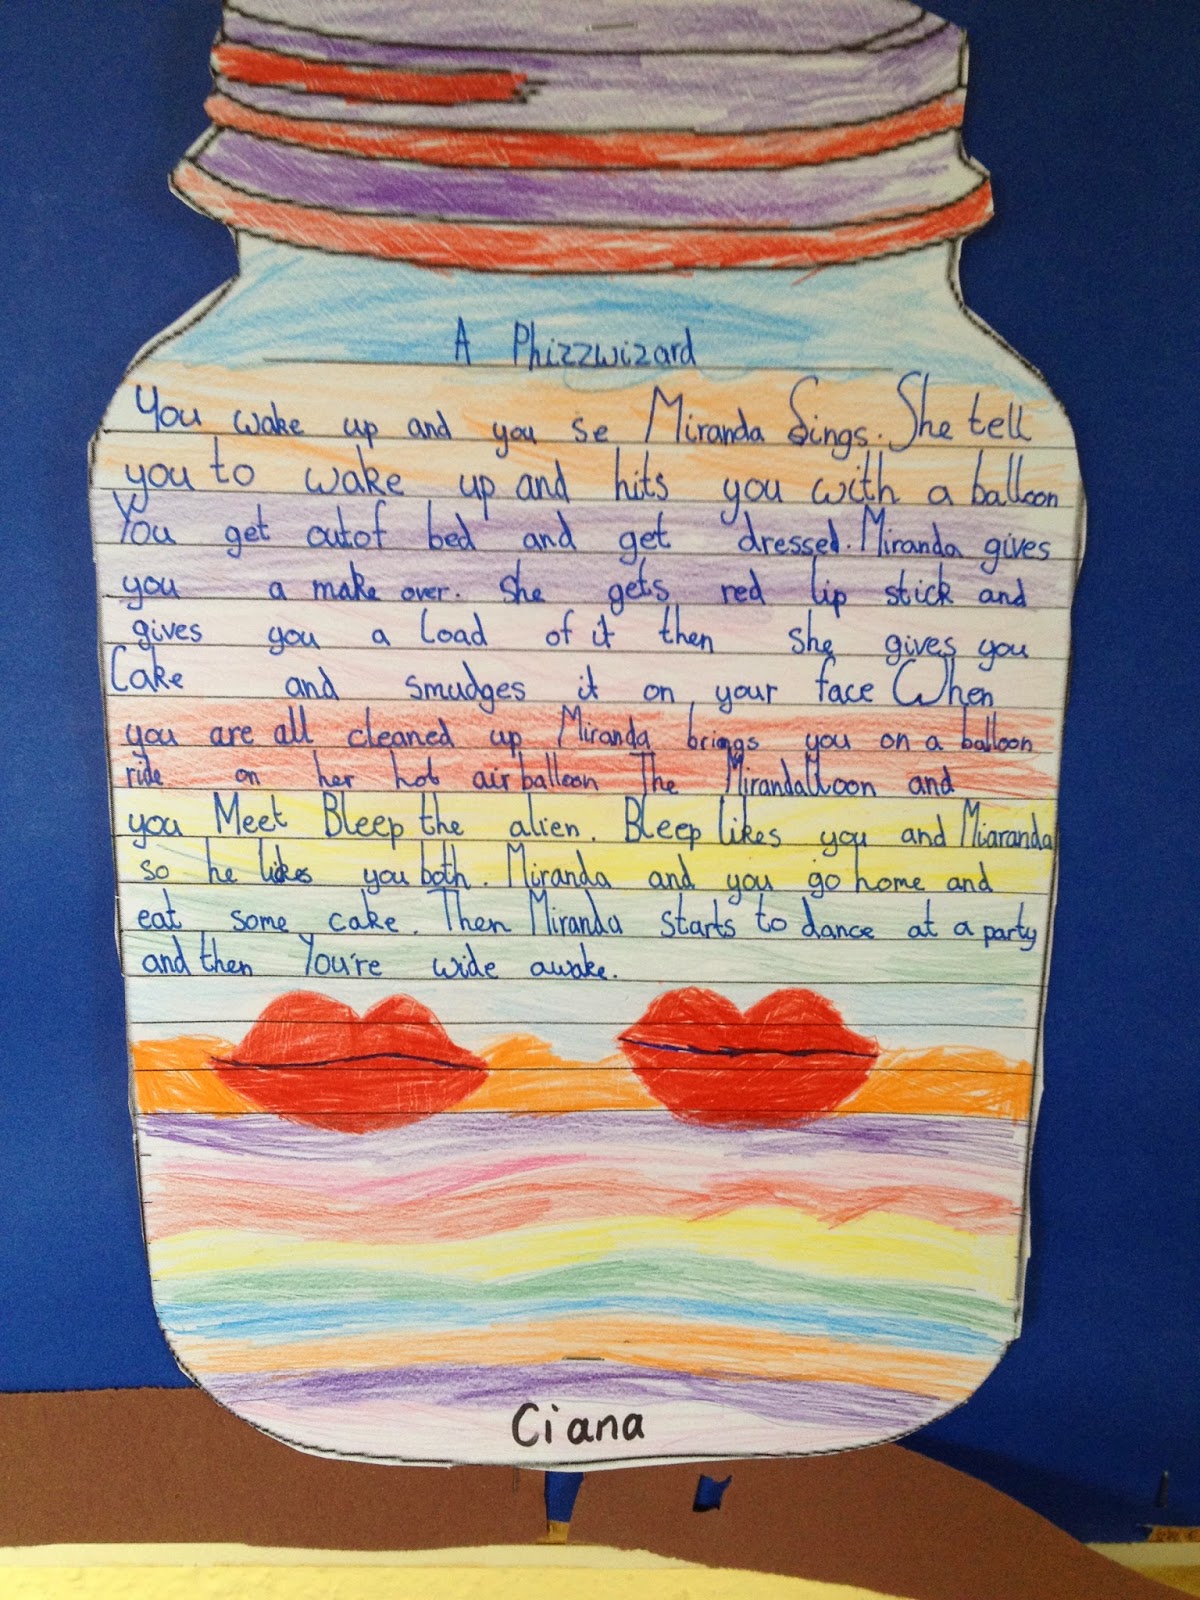 A Phizzwizard
You wake up and you se Miranda Sings. She tell
you to wake up and hits you with a balloon
You get outof bed and get dressed. Miranda gives
you a make over. She gets red lip stick and
gives you a load of it then she gives you
Cake and smudges it on your face When
you are all cleaned up Miranda brings you on a balloon
ride on her hot air balloon The Mirandalloon and
you Meet Bleep the alien. Bleep likes you and Miaranda
so he likes you both. Miranda and you go home and
eat some cake. Then Miranda starts to dance at a party
and then You're wide awake.
Ciana